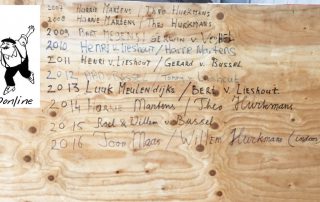 2007 Horrie Martens / Theo Hurkmans
2008 Harrie Martens / Theo Hurkmans
2009 Piet / Gerwin v
2010 Henri v. Lieshout / Harrie Martens
2011 Henri v. Lieshout / Gerard v. Bussel
2012 / Tonny v. Lieshout
2013 Luuk Meulendijks / Bert v. Lieshout
2014 Horrie Martens / Theo Hurkmans
2015 Roel & Willem v. Bussel
2016 Toon Maas / Willem Hurkmans
online